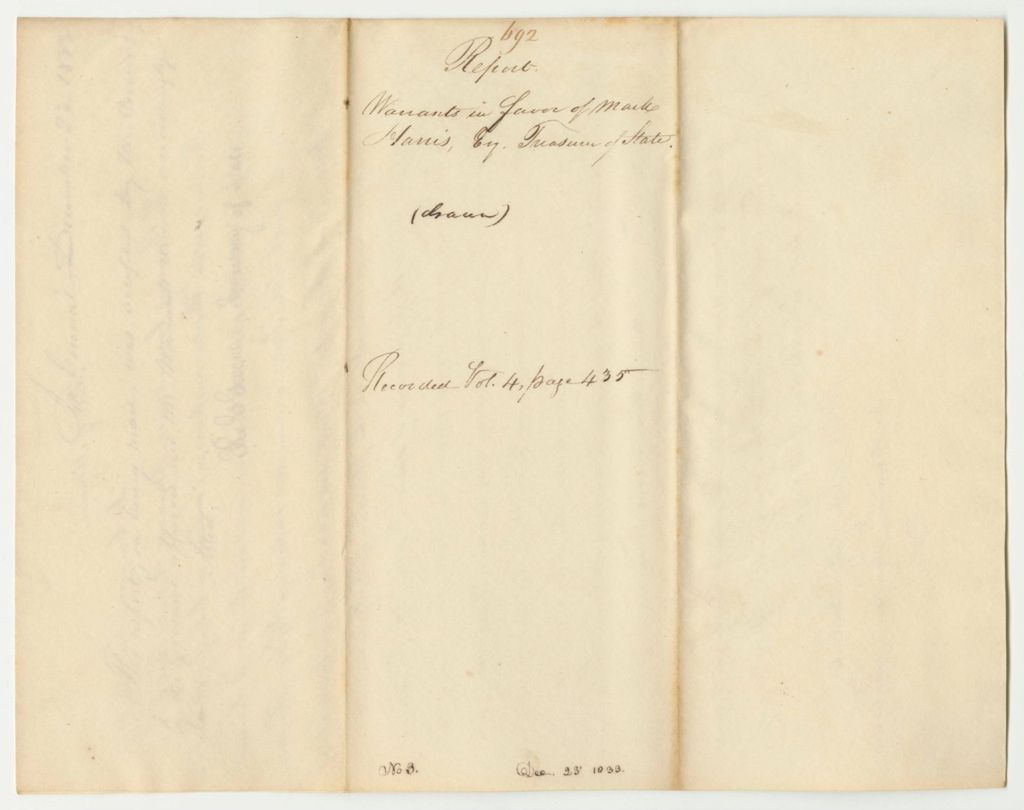 692
Report.
Warrants in favor of Mark
Harris, Esq. Treasurer of State.
(drawn)
Recorded Vol. 4, page 435
No 3.
Dec. 23 1833.